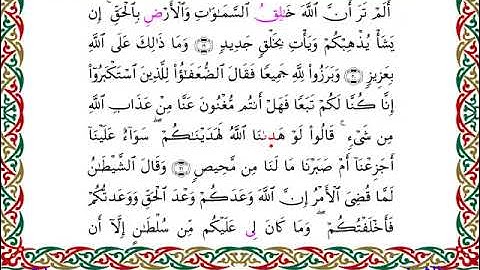 أَلَمْ تَرَ أَنَّ ٱللَّهَ خَٰلِقُ ٱلسَّمَٰوَٰتِ وَٱلْأَرْضِ بِٱلْحَقِّ ۚ إِن
يَشَأْ يُذْهِبْكُمْ وَيَأْتِ بِخَلْقٍ جَدِيدٍ وَمَا ذَٰلِكَ عَلَى ٱللَّهِ
بِعَزِيزٍ وَبَرَزُوا۟ لِلَّهِ جَمِيعًا فَقَالَ ٱلضُّعَفَٰٓؤُا۟ لِلَّذِينَ ٱسْتَكْبَرُوٓا۟
إِنَّا كُنَّا لَكُمْ تَبَعًا فَهَلْ أَنتُم مُّغْنُونَ عَنَّا مِنْ عَذَابِ ٱللَّهِ
مِن شَىْءٍ ۚ قَالُوا۟ لَوْ هَدَىٰنَا ٱللَّهُ لَهَدَيْنَٰكُمْ ۖ سَوَآءٌ عَلَيْنَآ
أَجَزِعْنَآ أَمْ صَبَرْنَا مَا لَنَا مِن مَّحِيصٍ وَقَالَ ٱلشَّيْطَٰنُ
لَمَّا قُضِىَ ٱلْأَمْرُ إِنَّ ٱللَّهَ وَعَدَكُمْ وَعْدَ ٱلْحَقِّ وَوَعَدتُّكُمْ
فَأَخْلَفْتُكُمْ ۖ وَمَا كَانَ لِى عَلَيْكُم مِّن سُلْطَٰنٍ إِلَّآ أَن